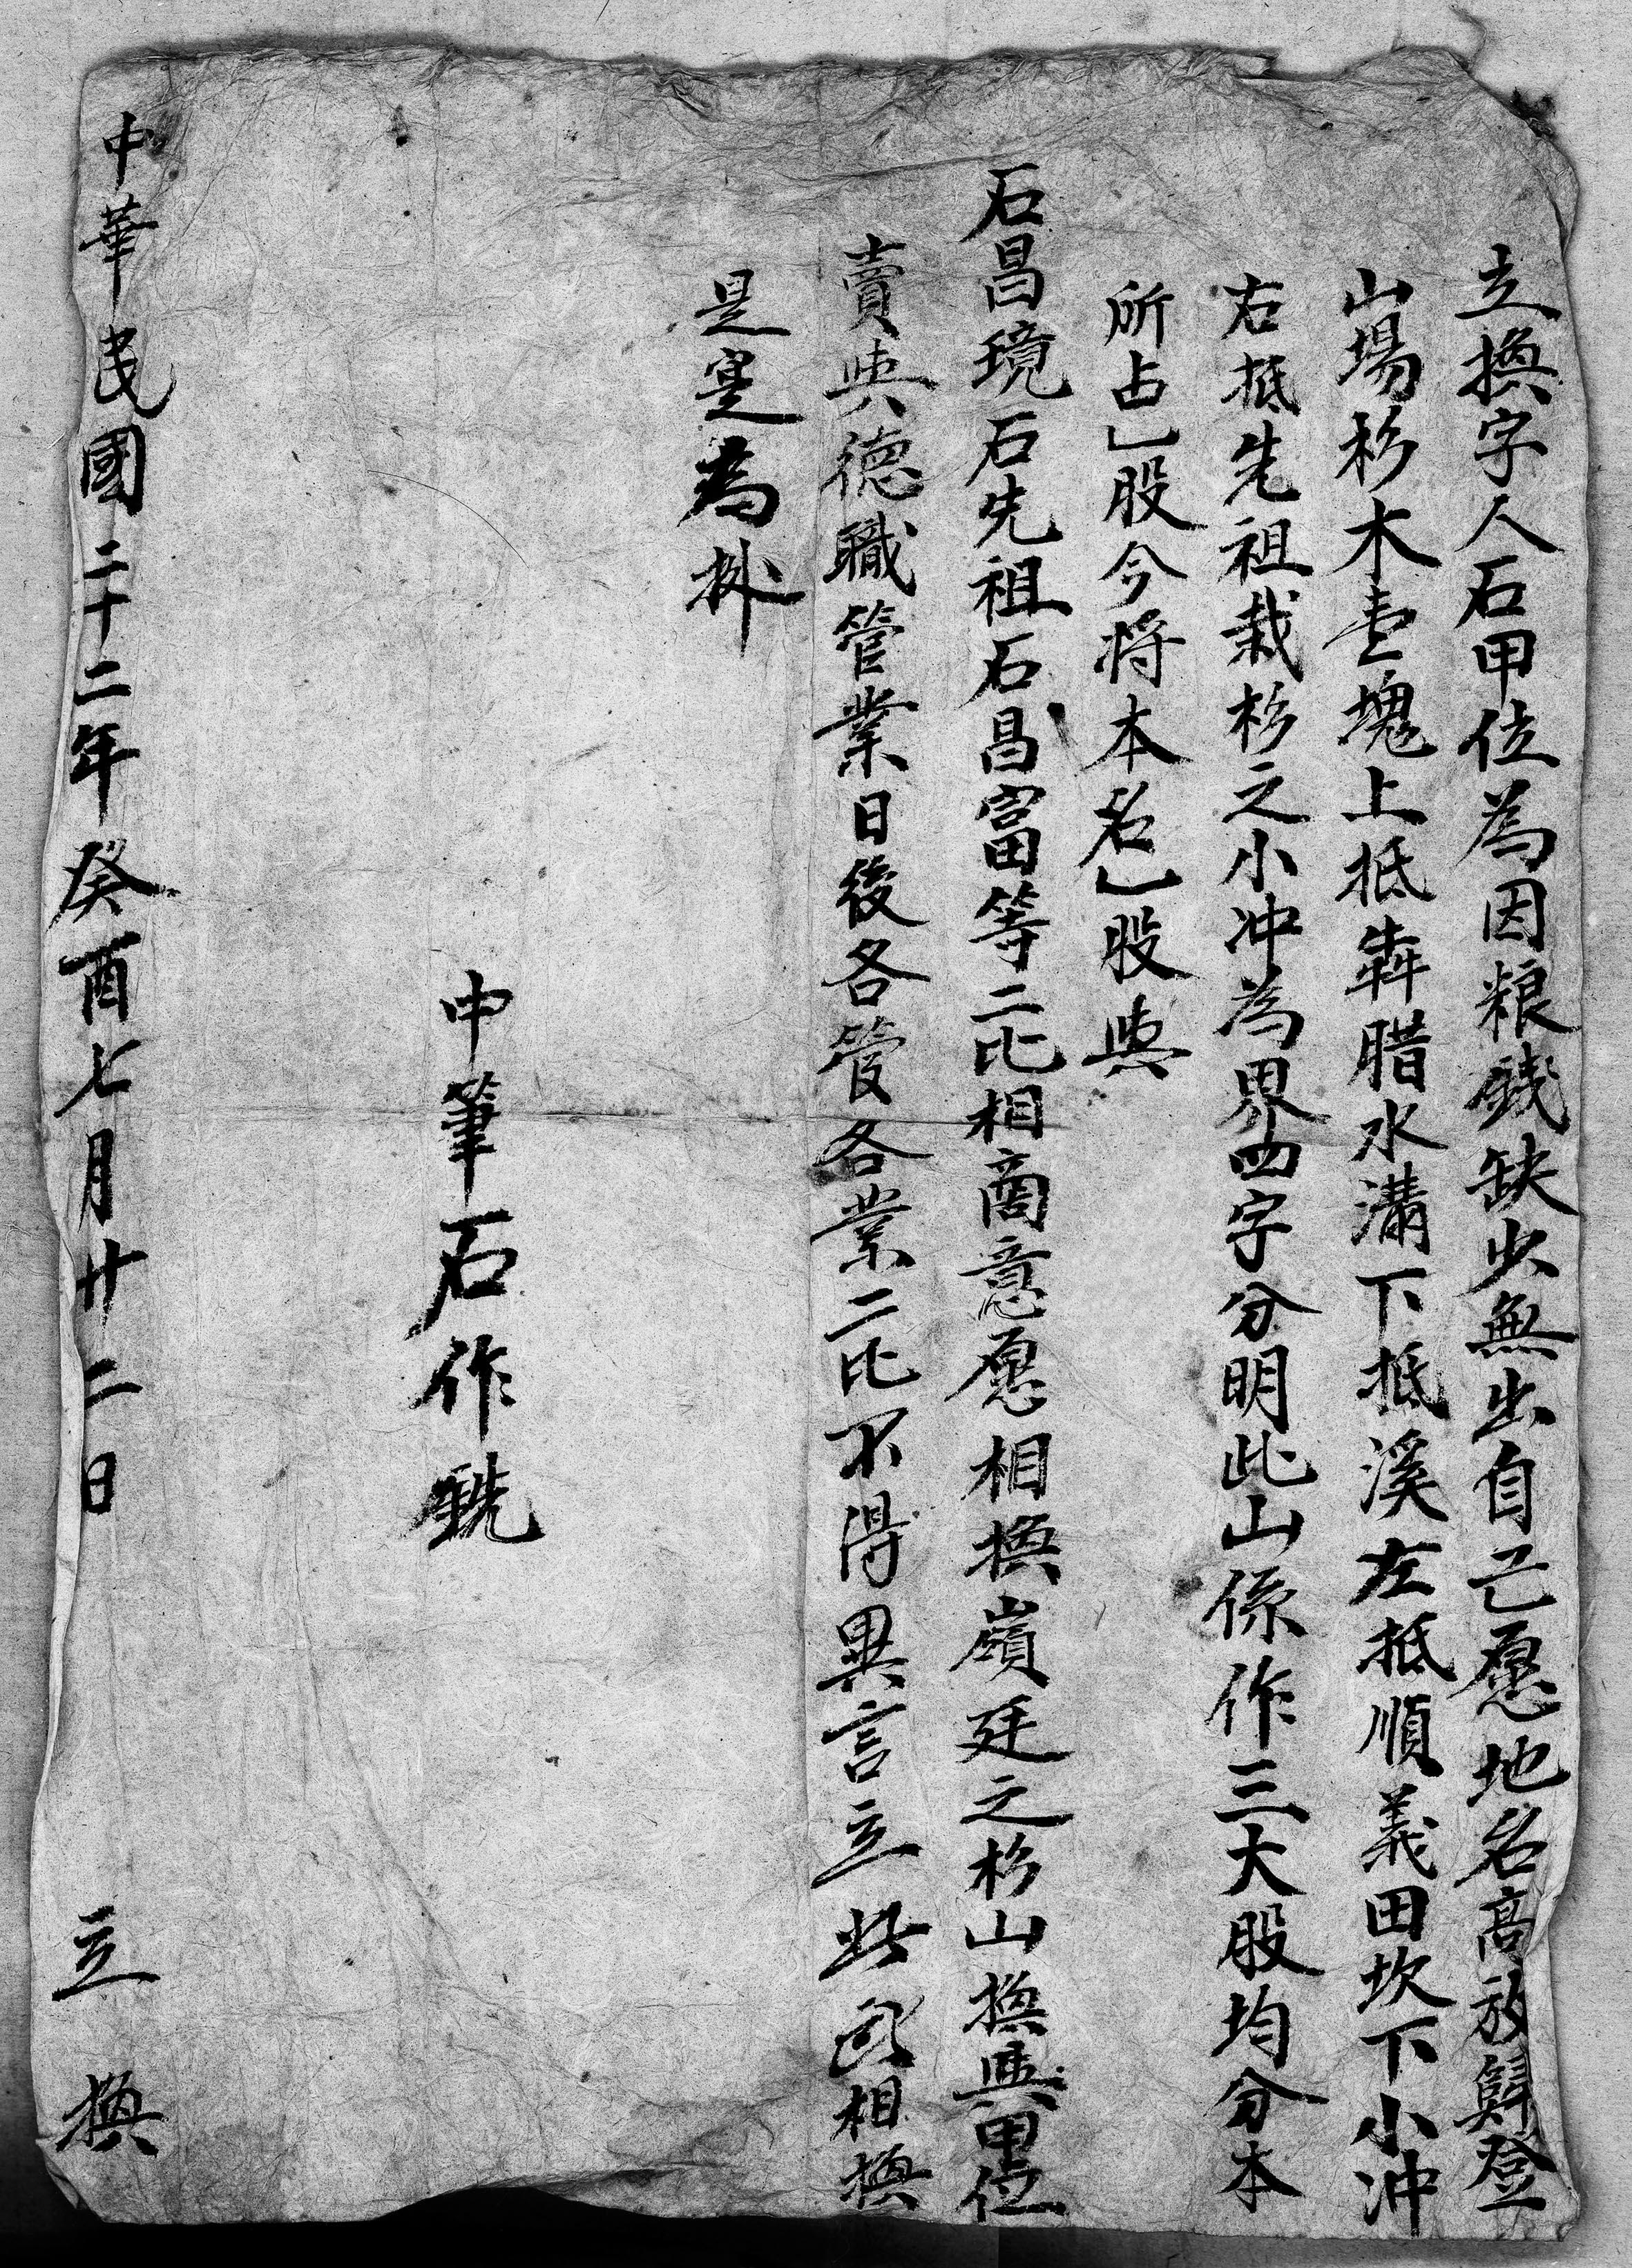 立換字人石甲位為因粮錢缺少無出自己愿地名高放歸登
山場杉木壹塊上抵犇腊水溝下抵溪左抵順義田坎下小冲
右抵先祖栽杉之小冲為界四字分明此山係作三大股均分本
所占乚股今将本名乚股與
石昌境石先祖石昌富等二比相商意愿相換嶺廷之杉山換與甲位
賣與德職管業日後各管各業二比不得異言立此相換
是寔為掛
中筆石作銧
中華民國二十二年癸酉七月廿二日立換